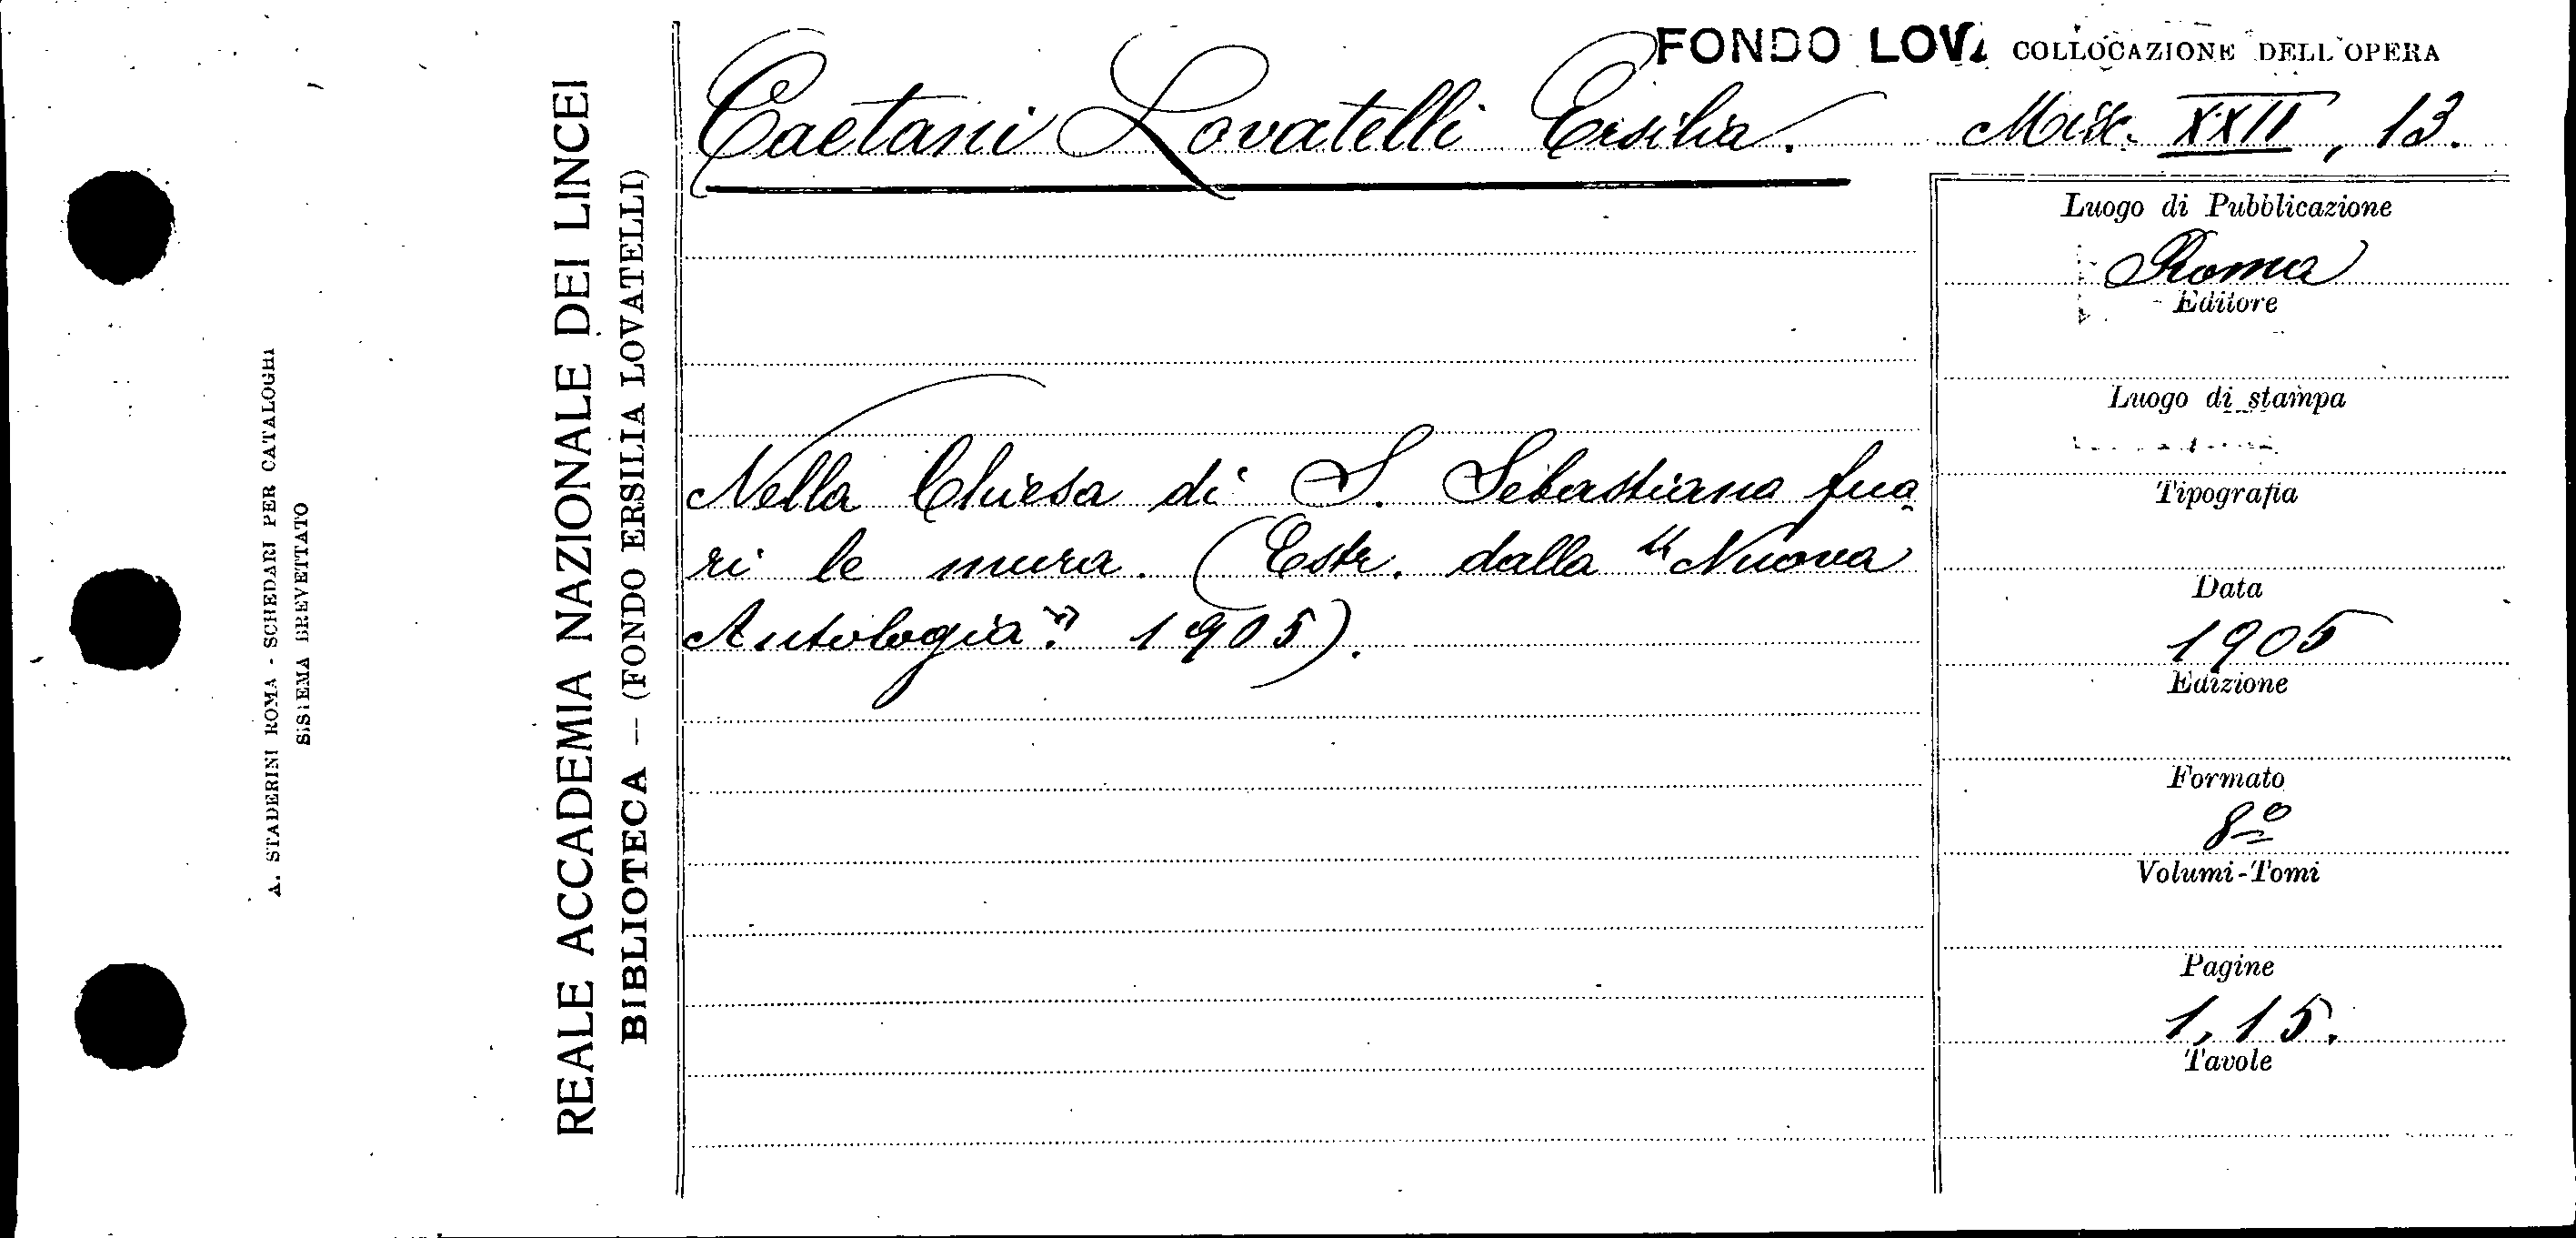 A. STADERINI ROMA - SCHEDARI PER CATALOGHI
SISTEMA BREVETTATO
REALE ACCADEMIA NAZIONALE DEI LINCEI
BIBLIOTECA — (FONDO ERSILIA LOVATELLI)
FONDO LOV
Caetani Lovatelli Ersilia.
Nella Chiesa di S. Sebastiano fuo-
ri le mura. (Estr. dalla "Nuova
Antologia". 1905).
COLLOCAZIONE DELL'OPERA
Misc. XXII, 13.
Luogo di Pubblicazione
Roma
Editore
Luogo di stampa
Tipografia
Data
1905
Edizione
Formato
8º
Volumi-Tomi
Pagine
1,15.
Tavole